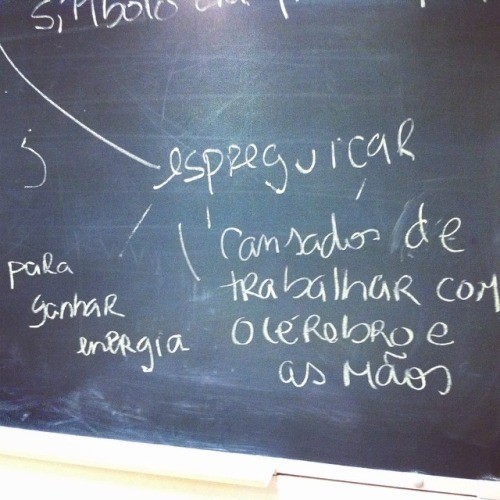 símbolo da
espreguiçar
cansados de
para
trabalhar com
ganhar
o cérebro e
energia
as mãos